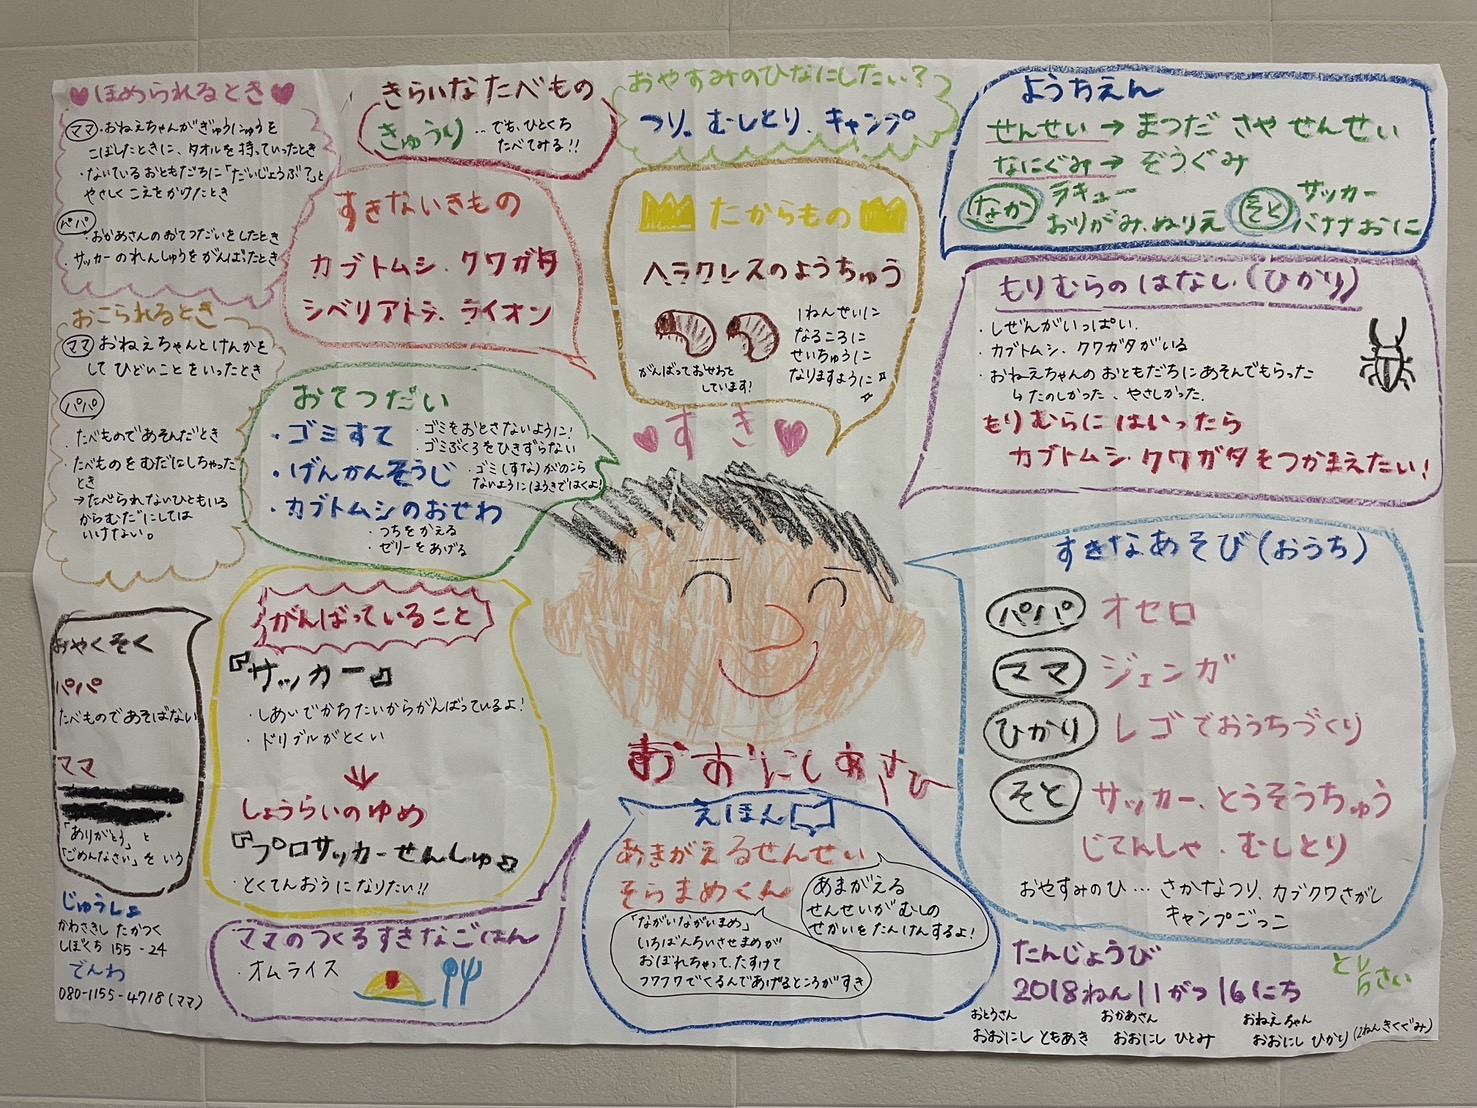 ほめられるとき
ママ ・おねえちゃんがぎゅうにゅうを
こぼしたときに、タオルを持っていったとき
・ないているおともだちに「だいじょうぶ？」と
やさしくこえをかけたとき
パパ
・おかあさんのおてつだいをしたとき
・サッカーのれんしゅうをがんばったとき
おこられるとき
ママ おねえちゃんとけんかを
してひどいことをいったとき
パパ
・たべものであそんだとき
・たべものをむだにしちゃった
とき
→たべられないひともいる
からむだにしては
いけない。
おやくそく
パパ
たべものであそばない
ママ
「ありがとう」と
「ごめんなさい」をいう
じゅうしょ
かわさきし たかつく
しぼくち 155-24
でんわ
080-1155-4718(ママ)
きらいなたべもの
きゅうり ‥でも、ひとくち
たべてみる!!
すきないきもの
カブトムシ・クワガタ
シベリアトラ、ライオン
おてつだい
・ゴミすて
・ゴミをおとさないように!
ゴミぶくろをひきずらない
・げんかんそうじ
・ゴミ(すな)がのこら
ないようにほうきではくよ!
・カブトムシのおせわ
・つちをかえる
・ゼリーをあげる
がんばっていること
『サッカー』
・しあいでかちたいからがんばっているよ!
・ドリブルがとくい
↓
しょうらいのゆめ
『プロサッカーせんしゅ』
・とくてんおうになりたい!!
ママのつくるすきなごはん
・オムライス
おやすみのひなにしたい?
つり。むしとり、キャンプ
たからもの
ヘラクレスのようちゅう
1ねんせいに
なるころに
せいちゅうに
なりますように☆
がんばっておせわを
しています!
すき
おおにしあさひ
えほん
あまがえるせんせい
そらまめくん
あまがえる
せんせいがむしの
せかいをたんけんするよ!
「ながいながいまめ」
いちばんちいさせまめが
おぼれちゃって、たすけて
フワフワでくるんであげるところがすき
ようちえん
せんせい→まつだ さや せんせい
なにぐみ→ぞうぐみ
なか ラキュー
おりがみ、ぬりえ
そと サッカー
バナナおに
もりむらのはなし、(ひかり)
・しぜんがいっぱい、
・カブトムシ、クワガタがいる
・おねえちゃんのおともだちにあそんでもらった
↳たのしかった、やさしかった、
もりむらにはいったら
カブトムシ・クワガタをつかまえたい!
すきなあそび(おうち)
パパ オセロ
ママ ジェンガ
ひかり レゴでおうちづくり
そと サッカー、とうそうちゅう
じてんしゃ・むしとり
おやすみのひ… さかなつり、カブクワさがし
キャンプごっこ
たんじょうび
2018ねん11がつ16にち
おとうさん おかあさん おねえちゃん
おおにし ともあき おおにし ひとみ おおにし ひかり(2ねんきくぐみ)